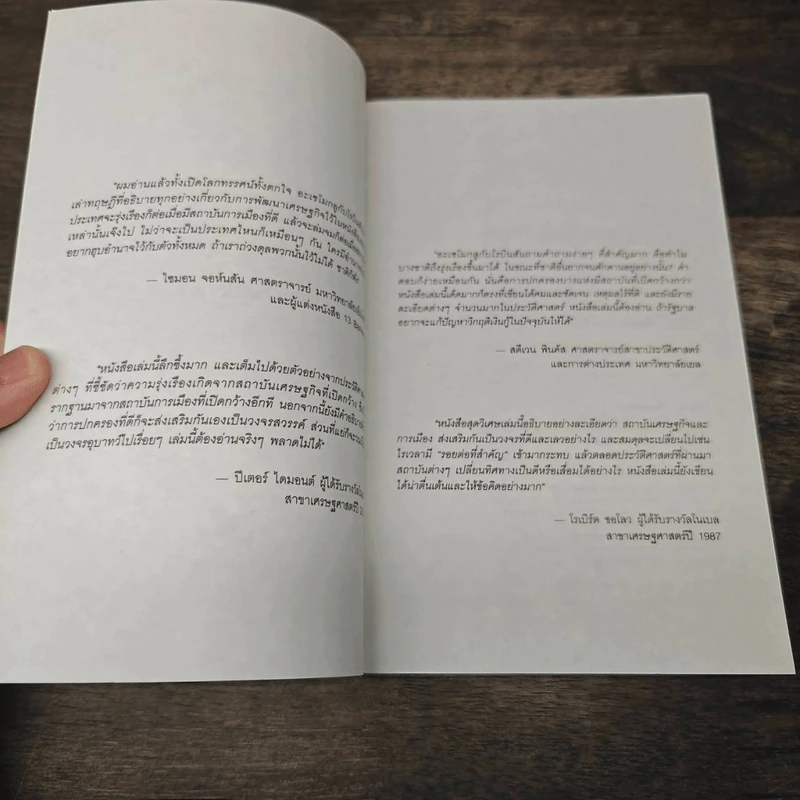 "ผมอ่านแล้วทั้งเปิดโลกทรรศน์ทั้งตกใจ อะเซโมกลูกับโรบินสัน
เล่าทฤษฎีที่อธิบายทุกอย่างเกี่ยวกับการพัฒนาเศรษฐกิจไว้ในหนังสือ
ประเทศจะรุ่งเรืองก็ต่อเมื่อมีสถาบันการเมืองที่ดี แล้วจะล่มจมก็ต่อเมื่อ
เหล่านั้นเจ๊งไป ไม่ว่าจะเป็นประเทศไหนก็เหมือนๆ กัน ใครมีอำนาจ
อยากฮุบอำนาจไว้กับตัวทั้งหมด ถ้าเราถ่วงดุลพวกนั้นไว้ไม่ได้ ชาติก็
— ไซมอน จอห์นสัน ศาสตราจารย์ มหาวิทยาลัย
และผู้แต่งหนังสือ 13
"หนังสือเล่มนี้ลึกซึ้งมาก และเต็มไปด้วยตัวอย่างจากประวัติ
ต่างๆ ที่ชี้ชัดว่าความรุ่งเรืองเกิดจากสถาบันเศรษฐกิจที่เปิดกว้าง
รากฐานมาจากสถาบันการเมืองที่เปิดกว้างอีกที นอกจากนี้ยังมีคำอธิบาย
ว่าการปกครองที่ดีก็จะส่งเสริมกันเองเป็นวงจรสวรรค์ ส่วนที่แย่ก็จะ
เป็นวงจรอุบาทว์ไปเรื่อยๆ เล่มนี้ต้องอ่านจริงๆ พลาดไม่ได้"
— ปีเตอร์ ไดมอนด์ ผู้ได้รับรางวัล
สาขาเศรษฐศาสตร์ปี
"อะเซโมกลูกับโรบินสันถามคำถามง่ายๆ ที่สำคัญมาก คือทำไม
บางชาติถึงรุ่งเรืองขึ้นมาได้ ในขณะที่ชาติอื่นยากจนดักดานอยู่อย่างนั้น? คำ
ตอบก็ง่ายเหมือนกัน นั่นคือการปกครองบางแห่งมีสถาบันที่เปิดกว้างกว่า
หนังสือเล่มนี้เด็ดมากก็ตรงที่เขียนได้คมและชัดเจน เหตุผลไร้ที่ติ และยังมีราย
ละเอียดต่างๆ จำนวนมากในประวัติศาสตร์ หนังสือเล่มนี้ต้องอ่าน ถ้ารัฐบาล
อยากจะแก้ปัญหาวิกฤติเงินกู้ในปัจจุบันให้ได้"
— สตีเวน พินคัส ศาสตราจารย์สาขาประวัติศาสตร์
และการต่างประเทศ มหาวิทยาลัยเยล
"หนังสือสุดวิเศษเล่มนี้อธิบายอย่างละเอียดว่า สถาบันเศรษฐกิจและ
การเมือง ส่งเสริมกันเป็นวงจรที่ดีและเลวอย่างไร และสมดุลจะเปลี่ยนไปเช่น
ไรเวลามี "รอยต่อที่สำคัญ" เข้ามากระทบ แล้วตลอดประวัติศาสตร์ที่ผ่านมา
สถาบันต่างๆ เปลี่ยนทิศทางเป็นดีหรือเสื่อมได้อย่างไร หนังสือเล่มนี้ยังเขียน
ได้น่าตื่นเต้นและให้ข้อคิดอย่างมาก"
— โรเบิร์ต ซอโลว ผู้ได้รับรางวัลโนเบล
สาขาเศรษฐศาสตร์ปี 1987